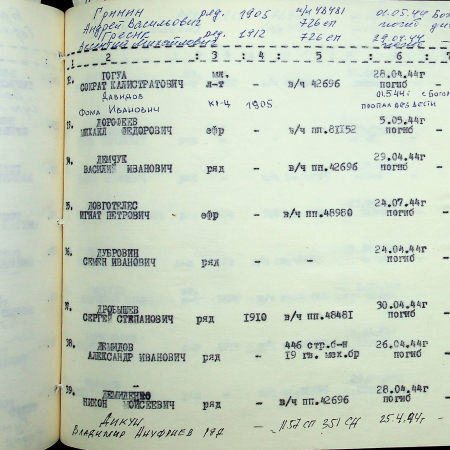 Гринин ряд. 1905 п/п 48481 01.05.44
Андрей Васильович 726 сп погиб
Гресна ряд. 1912 726 сп 29.04.44
Михайлович
1. : 2 : 3 : 4 : 5 : 6 : 7
32. ГОГУА мл. 28.04.44г
СОКРАТ КАЛИСТРАТОВИЧ л-т - в/ч 42696 погиб
Давидов 01.5.44г с.
Фома Иванович кр-ц 1905 пропал без вести
33. ДОРОФЕЕВ 5.05.44г
МИХАИЛ ФЕДОРОВИЧ ефр - в/ч пп.81152 погиб
34. ДЕМЧУК 29.04.44г
ВАСИЛИЙ ИВАНОВИЧ ряд - в/ч пп.42696 погиб
35. ДОВГОТЕЛЕС 24.07.44г
ИГНАТ ПЕТРОВИЧ ефр - в/ч пп.48980 погиб
36. ДУБРОВИН 24.04.44г
СЕМЕН ИВАНОВИЧ ряд - - погиб
37. ДРОБЫШЕВ 30.04.44г
СЕРГЕЙ СТЕПАНОВИЧ ряд 1910 в/ч пп.48481 погиб
38. ДЕМИДОВ 446 стр.б-н 26.04.44г
АЛЕКСАНДР ИВАНОВИЧ ряд - 19 гв. мех.бр погиб
39. ДЕМИДЕНКО 28.04.44г
НИКОН МОИСЕЕВИЧ ряд - в/ч пп.42696 погиб
Дикун
Владимир Ануфриев ряд - 1157 сп 351 сд 25.4.44г -